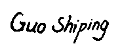 Guo Shiping